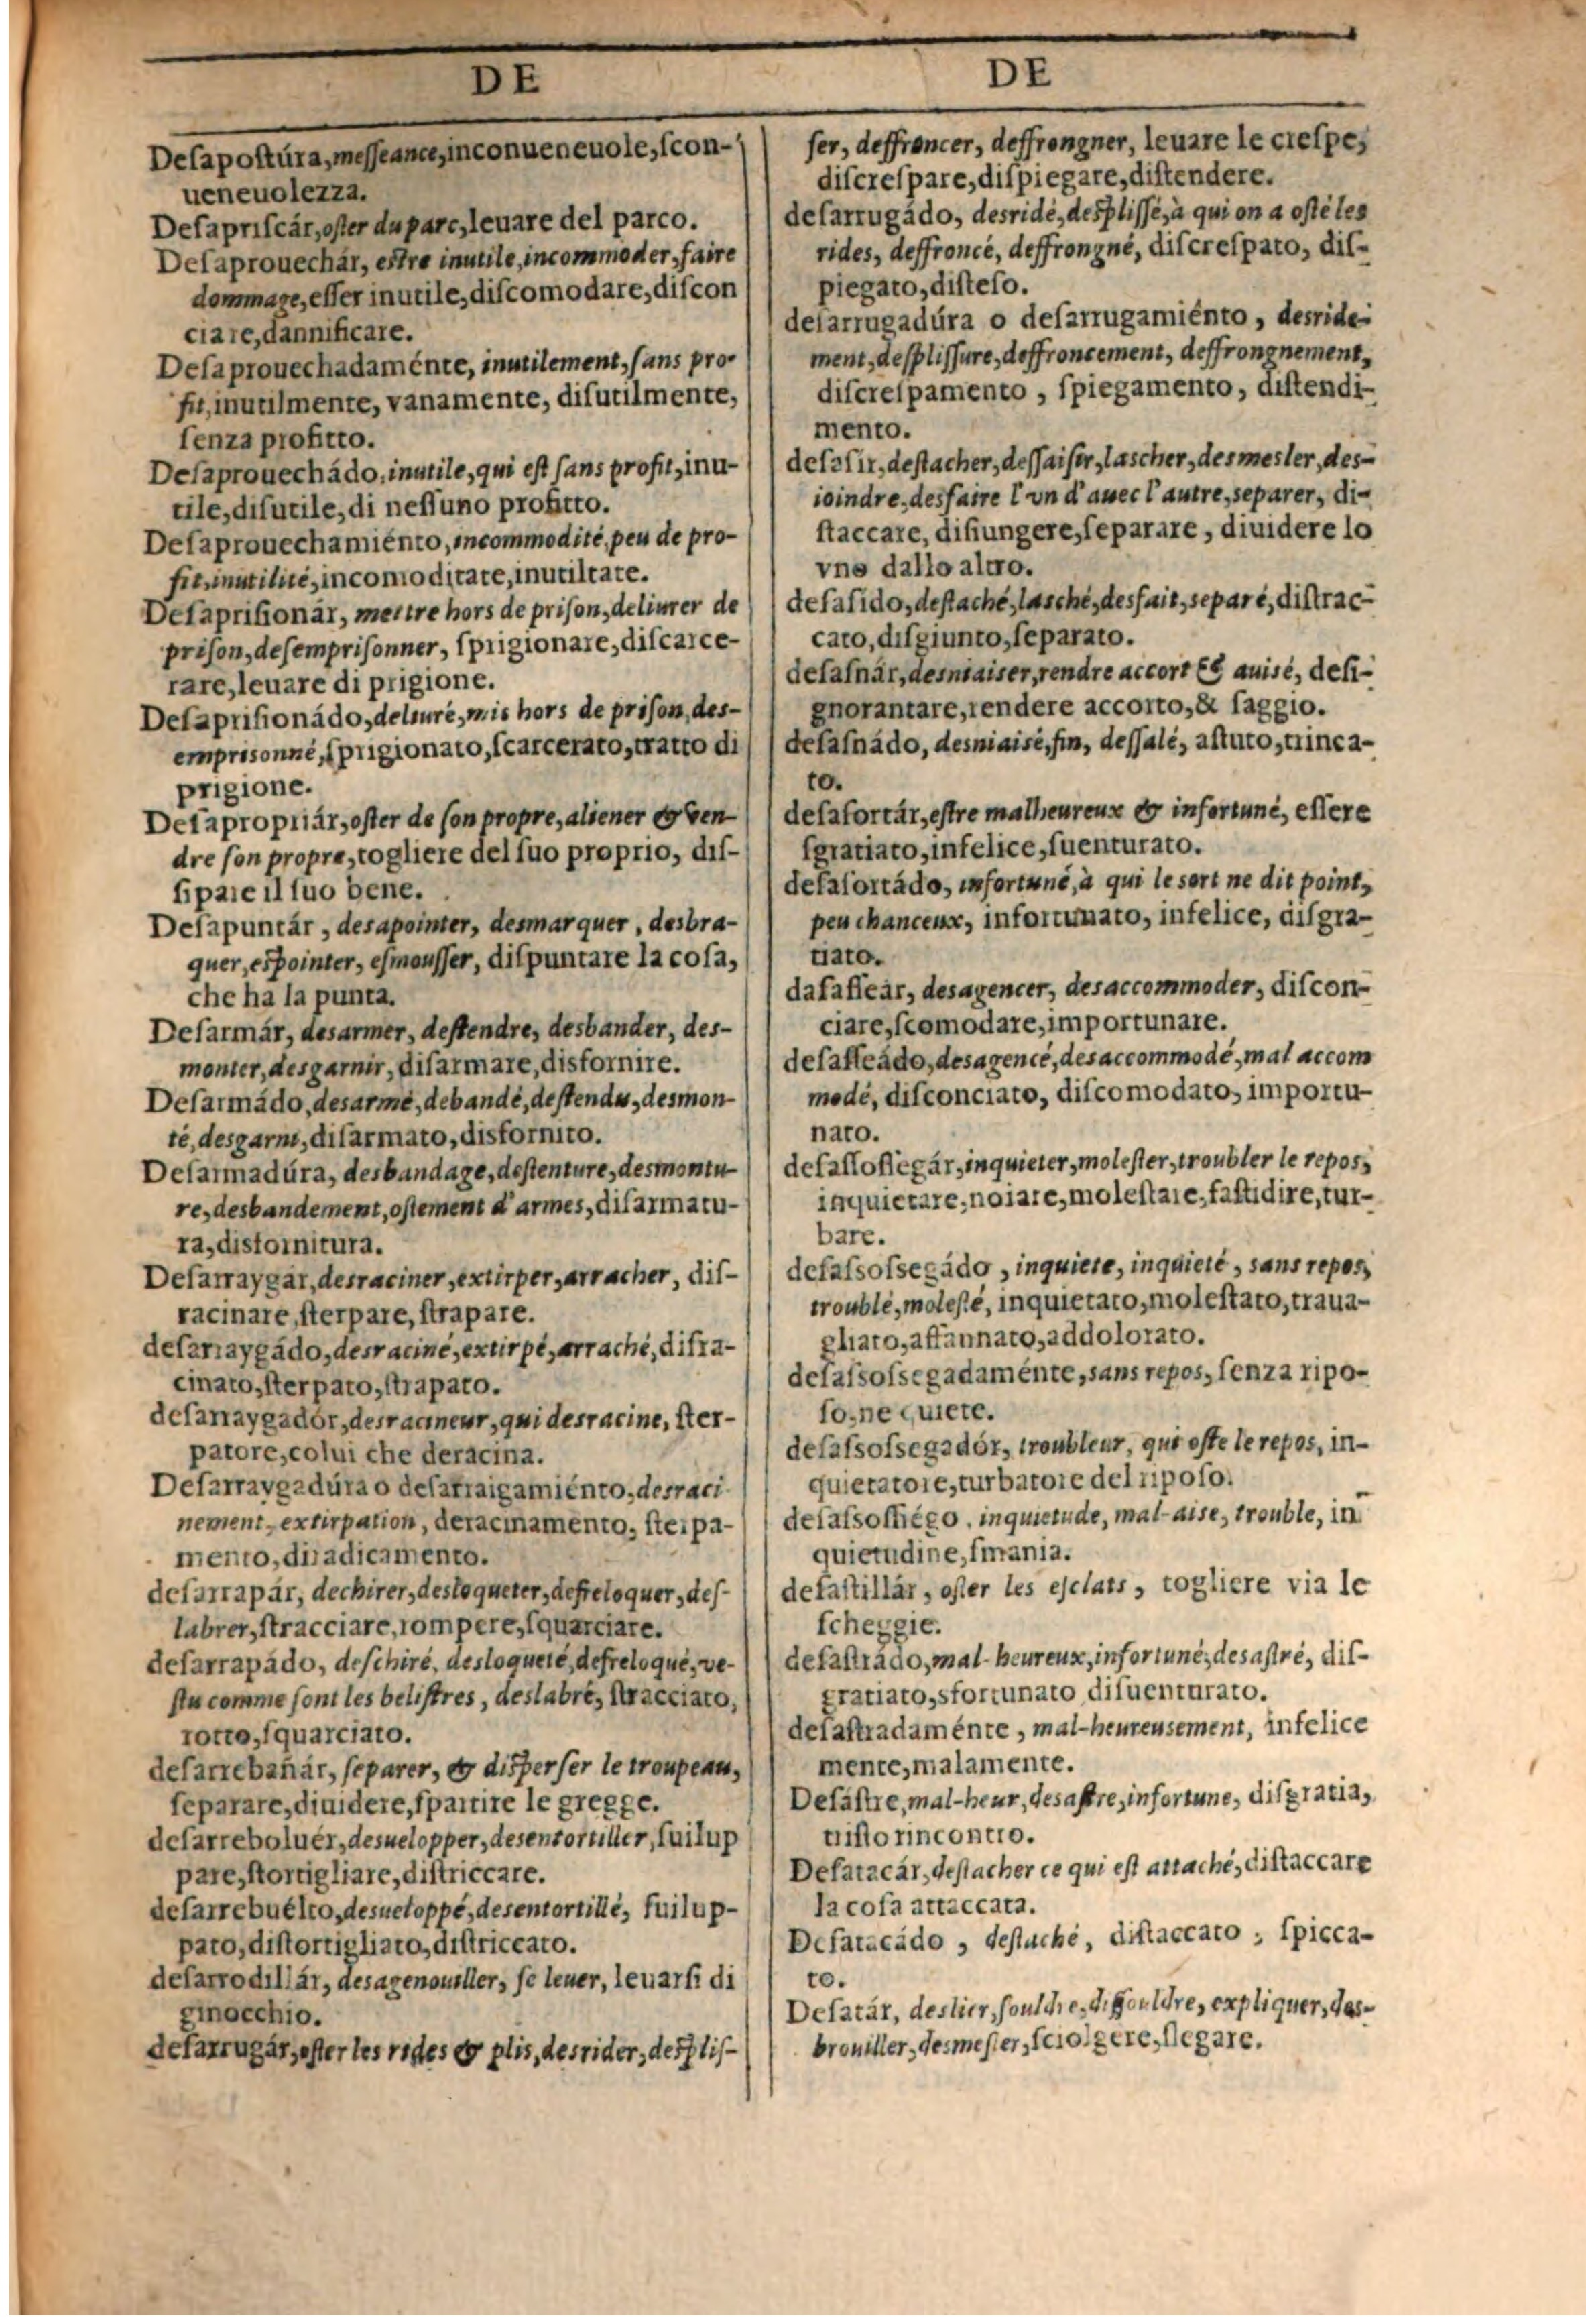 DE
Deſapoſtúra, meſſeance, inconueneuole, ſcon-
ueneuolezza.
Deſapriſcár, oſter du parc, leuare del parco.
Deſaprouechár, eſtre inutile, incommoder, faire
dommage, eſſer inutile, diſcomodare, diſcon
ciare, dannificare.
Deſaprouechadaménte, inutilement, ſans pro-
fit, inutilmente, vanamente, diſutilmente,
ſenza profitto.
Deſaprouechádo, inutile, qui eſt ſans profit, inu-
tile, diſutile, di neſſuno profitto.
Deſaprouechamiénto, incommodité, peu de pro-
fit, inutilité, incomoditate, inutiltate.
Deſapriſionár, mettre hors de priſon, deliurer de
priſon, deſempriſonner, ſprigionare, diſcarce-
rare, leuare di prigione.
Deſapriſionádo, deliuré, mis hors de priſon, des-
empriſonné, ſprigionato, ſcarcerato, tratto di
prigione.
Deſapropriár, oſter de ſon propre, aliener & ven-
dre ſon propre, togliere del ſuo proprio, diſ-
ſipare il ſuo bene.
Deſapuntár, desapointer, desmarquer, desbra-
quer, eſpointer, eſmouſſer, diſpuntare la coſa,
che ha la punta.
Deſarmár, desarmer, deſtendre, desbander, des-
monter, desgarnir, diſarmare, disfornire.
Deſarmádo, desarmé, debandé, deſtendu, desmon-
té, desgarni, diſarmato, disfornito.
Deſarmadúra, desbandage, deſtenture, desmontu-
re, desbandement, oſtement d'armes, diſarmatu-
ra, disfornitura.
Deſarraygár, desraciner, extirper, arracher, diſ-
racinare, ſterpare, ſtrapare.
deſarraygádo, desraciné, extirpé, arraché, diſra-
cinato, ſterpato, ſtrapato.
deſarraygadór, desracineur, qui desracine, ſter-
patore, colui che deracina.
Deſarraygadúra o deſarraigamiénto, desraci-
nement, extirpation, deracinamento, ſterpa-
mento, diradicamento.
deſarrapár, dechirer, desloqueter, defreloquer, deſ-
labrer, ſtracciare, rompere, ſquarciare.
deſarrapádo, deſchiré, desloqueté, defreloqué, ve-
ſtu comme ſont les beliſtres, deslabré, ſtracciato,
rotto, ſquarciato.
deſarrebañár, ſeparer, & diſperſer le troupeau,
ſeparare, diuidere, ſpartire le gregge.
deſarreboluér, desuelopper, desentortiller, ſuilup
pare, ſtortigliare, diſtriccare.
deſarrebuélto, desueloppé, desentortillé, ſuilup-
pato, diſtortigliato, diſtriccato.
deſarrodillár, desagenouiller, ſe leuer, leuarſi di
ginocchio.
deſarrugár, oſter les rides & plis, desrider, deſpliſ-
DE
ſer, deffroncer, deffrongner, leuare le creſpe,
diſcreſpare, diſpiegare, diſtendere.
deſarrugádo, desridé, deſpliſſé, à qui on a oſté les
rides, deffroncé, deffrongné, diſcreſpato, diſ-
piegato, diſteſo.
deſarrugadúra o deſarrugamiénto, desride-
ment, deſpliſſure, deffroncement, deffrongnement,
diſcreſpamento, ſpiegamento, diſtendi-
mento.
deſaſir, deſtacher, deſſaiſir, lascher, desmesler, des-
ioindre, desfaire l'vn d'auec l'autre, separer, di-
ſtaccare, diſiungere, ſeparare, diuidere lo
vno dallo altro.
deſaſido, deſtaché, lasché, desfait, separé, diſtrac-
cato, diſgiunto, ſeparato.
deſaſnár, desniaiser, rendre accort & auisé, deſi-
gnorantare, rendere accorto, & ſaggio.
deſaſnádo, desniaisé, fin, deſſalé, aſtuto, trinca-
to.
deſaſortár, eſtre malheureux & infortuné, eſſere
ſgratiato, infelice, ſuenturato.
deſaſortádo, infortuné, à qui le sort ne dit point,
peu chanceux, infortunato, infelice, diſgra-
tiato.
daſaſſeár, desagencer, desaccommoder, diſcon-
ciare, ſcomodare, importunare.
deſaſſeádo, desagencé, desaccommodé, mal accom
modé, diſconciato, diſcomodato, importu-
nato.
deſaſſoſſegár, inquieter, moleſter, troubler le repos,
inquietare, noiare, moleſtare, faſtidire, tur-
bare.
deſaſsoſsegádo, inquiete, inquieté, sans repos,
troublé, moleſté, inquietato, moleſtato, traua-
gliato, affannato, addolorato.
deſaſsoſsegadaménte, sans repos, ſenza ripo-
ſo, ne quiete.
deſaſsoſsegadór, troubleur, qui oſte le repos, in-
quietatore, turbatore del ripoſo.
deſaſsoſſiégo, inquietude, mal-aise, trouble, in
quietudine, ſmania.
deſaſtillár, oſter les eſclats, togliere via le
ſcheggie.
deſaſtrádo, mal-heureux, infortuné, desaſtré, diſ-
gratiato, sfortunato diſuenturato.
deſaſtradaménte, mal-heureusement, infelice
mente, malamente.
Deſáſtre, mal-heur, desaſtre, infortune, diſgratia,
triſto rincontro.
Deſatacár, deſtacher ce qui eſt attaché, diſtaccare
la coſa attaccata.
Deſatacádo, deſtaché, diſtaccato, ſpicca-
to.
Deſatár, deslier, ſouldre, diſſouldre, expliquer, des-
brouiller, desmeſler, ſciolgere, ſlegare.